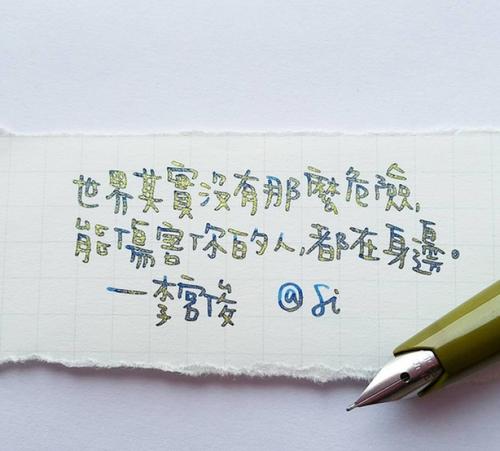 世界其實沒有那麼危險,
能傷害你的人,都在身邊。
一李宮俊 @Si